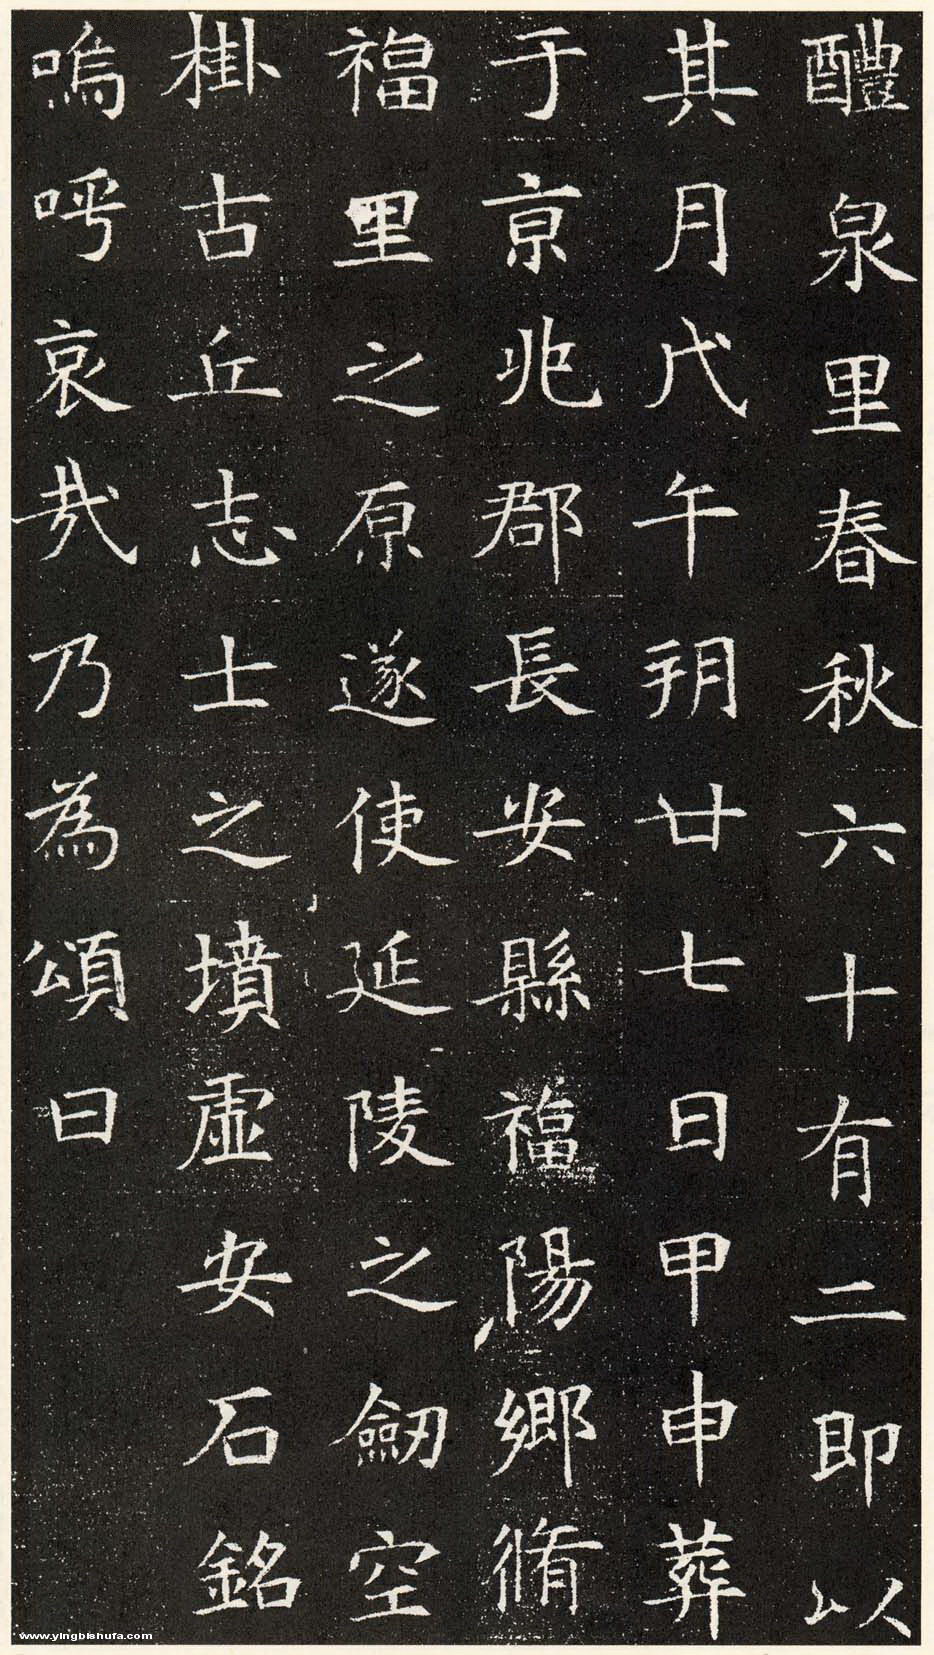 醴泉里春秋六十有二即以
其月戊午朔廿七日甲申葬
于京兆郡長安縣福陽鄉脩
福里之原遂使延陵之劒空
掛古丘志士之墳虛安石銘
嗚呼哀哉乃為頌曰
www.yingbishufa.com